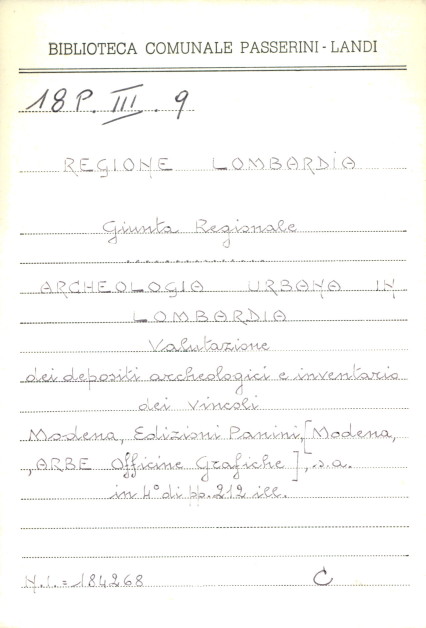 BIBLIOTECA COMUNALE PASSERINI - LANDI
18 P. III. 9
REGIONE LOMBARDIA
Giunta Regionale
ARCHEOLOGIA URBANA IN
LOMBARDIA
Valutazione
dei depositi archeologici e inventario
dei vincoli
Modena, Edizioni Panini, [Modena,
, ARBE Officine Grafiche], s.a.
in 4° di pp. 212 ill.
N.i. = 184268 C